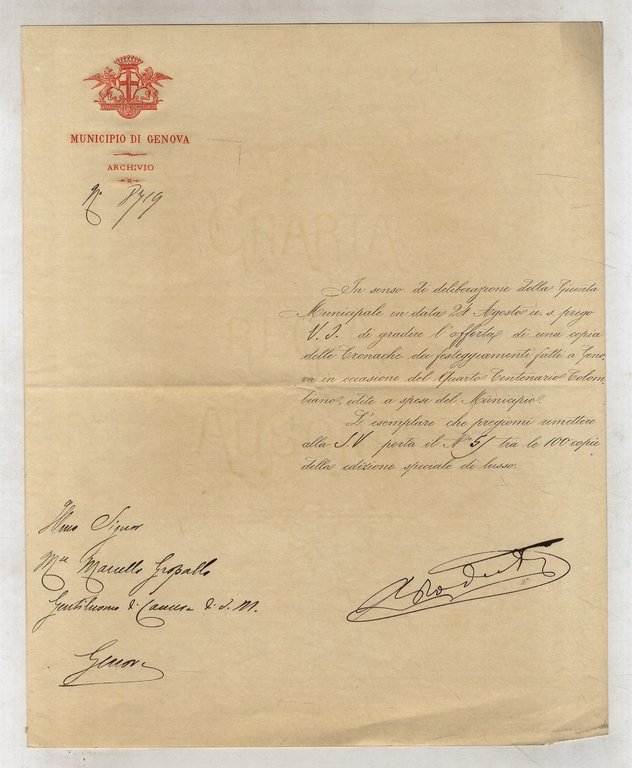 MUNICIPIO DI GENOVA
ARCHIVIO
N° 8719
CHARTA
In senso di deliberazione della Giunta
Municipale in data 24 Agosto u. s. prego
V. S. di gradire l'offerta di una copia
delle Cronache dei festeggiamenti fatti a Geno
va in occasione del Quarto Centenario Colom
biano, edite a spese del Municipio.
L'esemplare che pregiomi rimettere
alla S.V. porta il N° 51 tra le 100 copie
della edizione speciale di lusso.
Illmo Signor
Mse Marcello Gropallo
Gentiluomo di Camera di S. M.
Genova